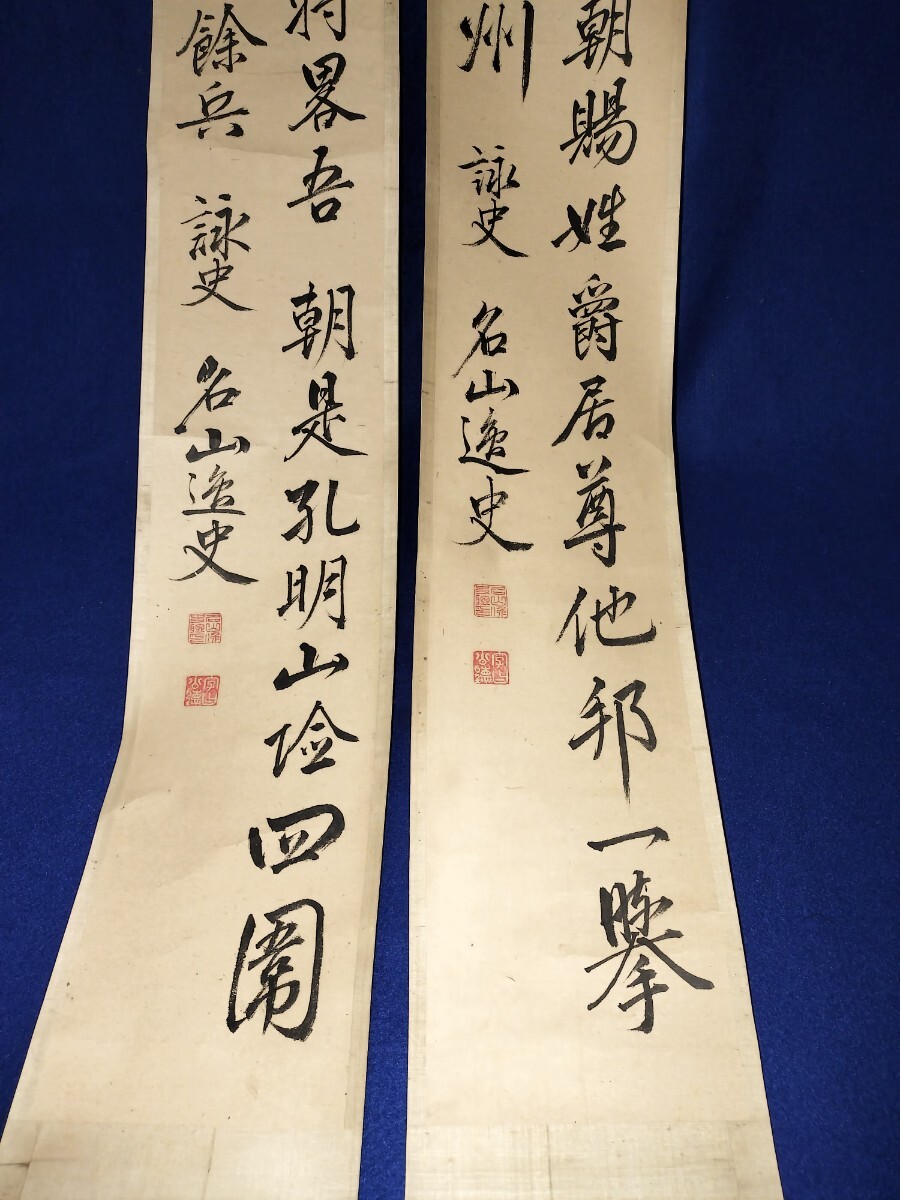 朝賜姓爵居尊他邦一擧
州 詠史 名山逸史
將畧吾 朝是孔明山險四圍
餘兵 詠史 名山逸史